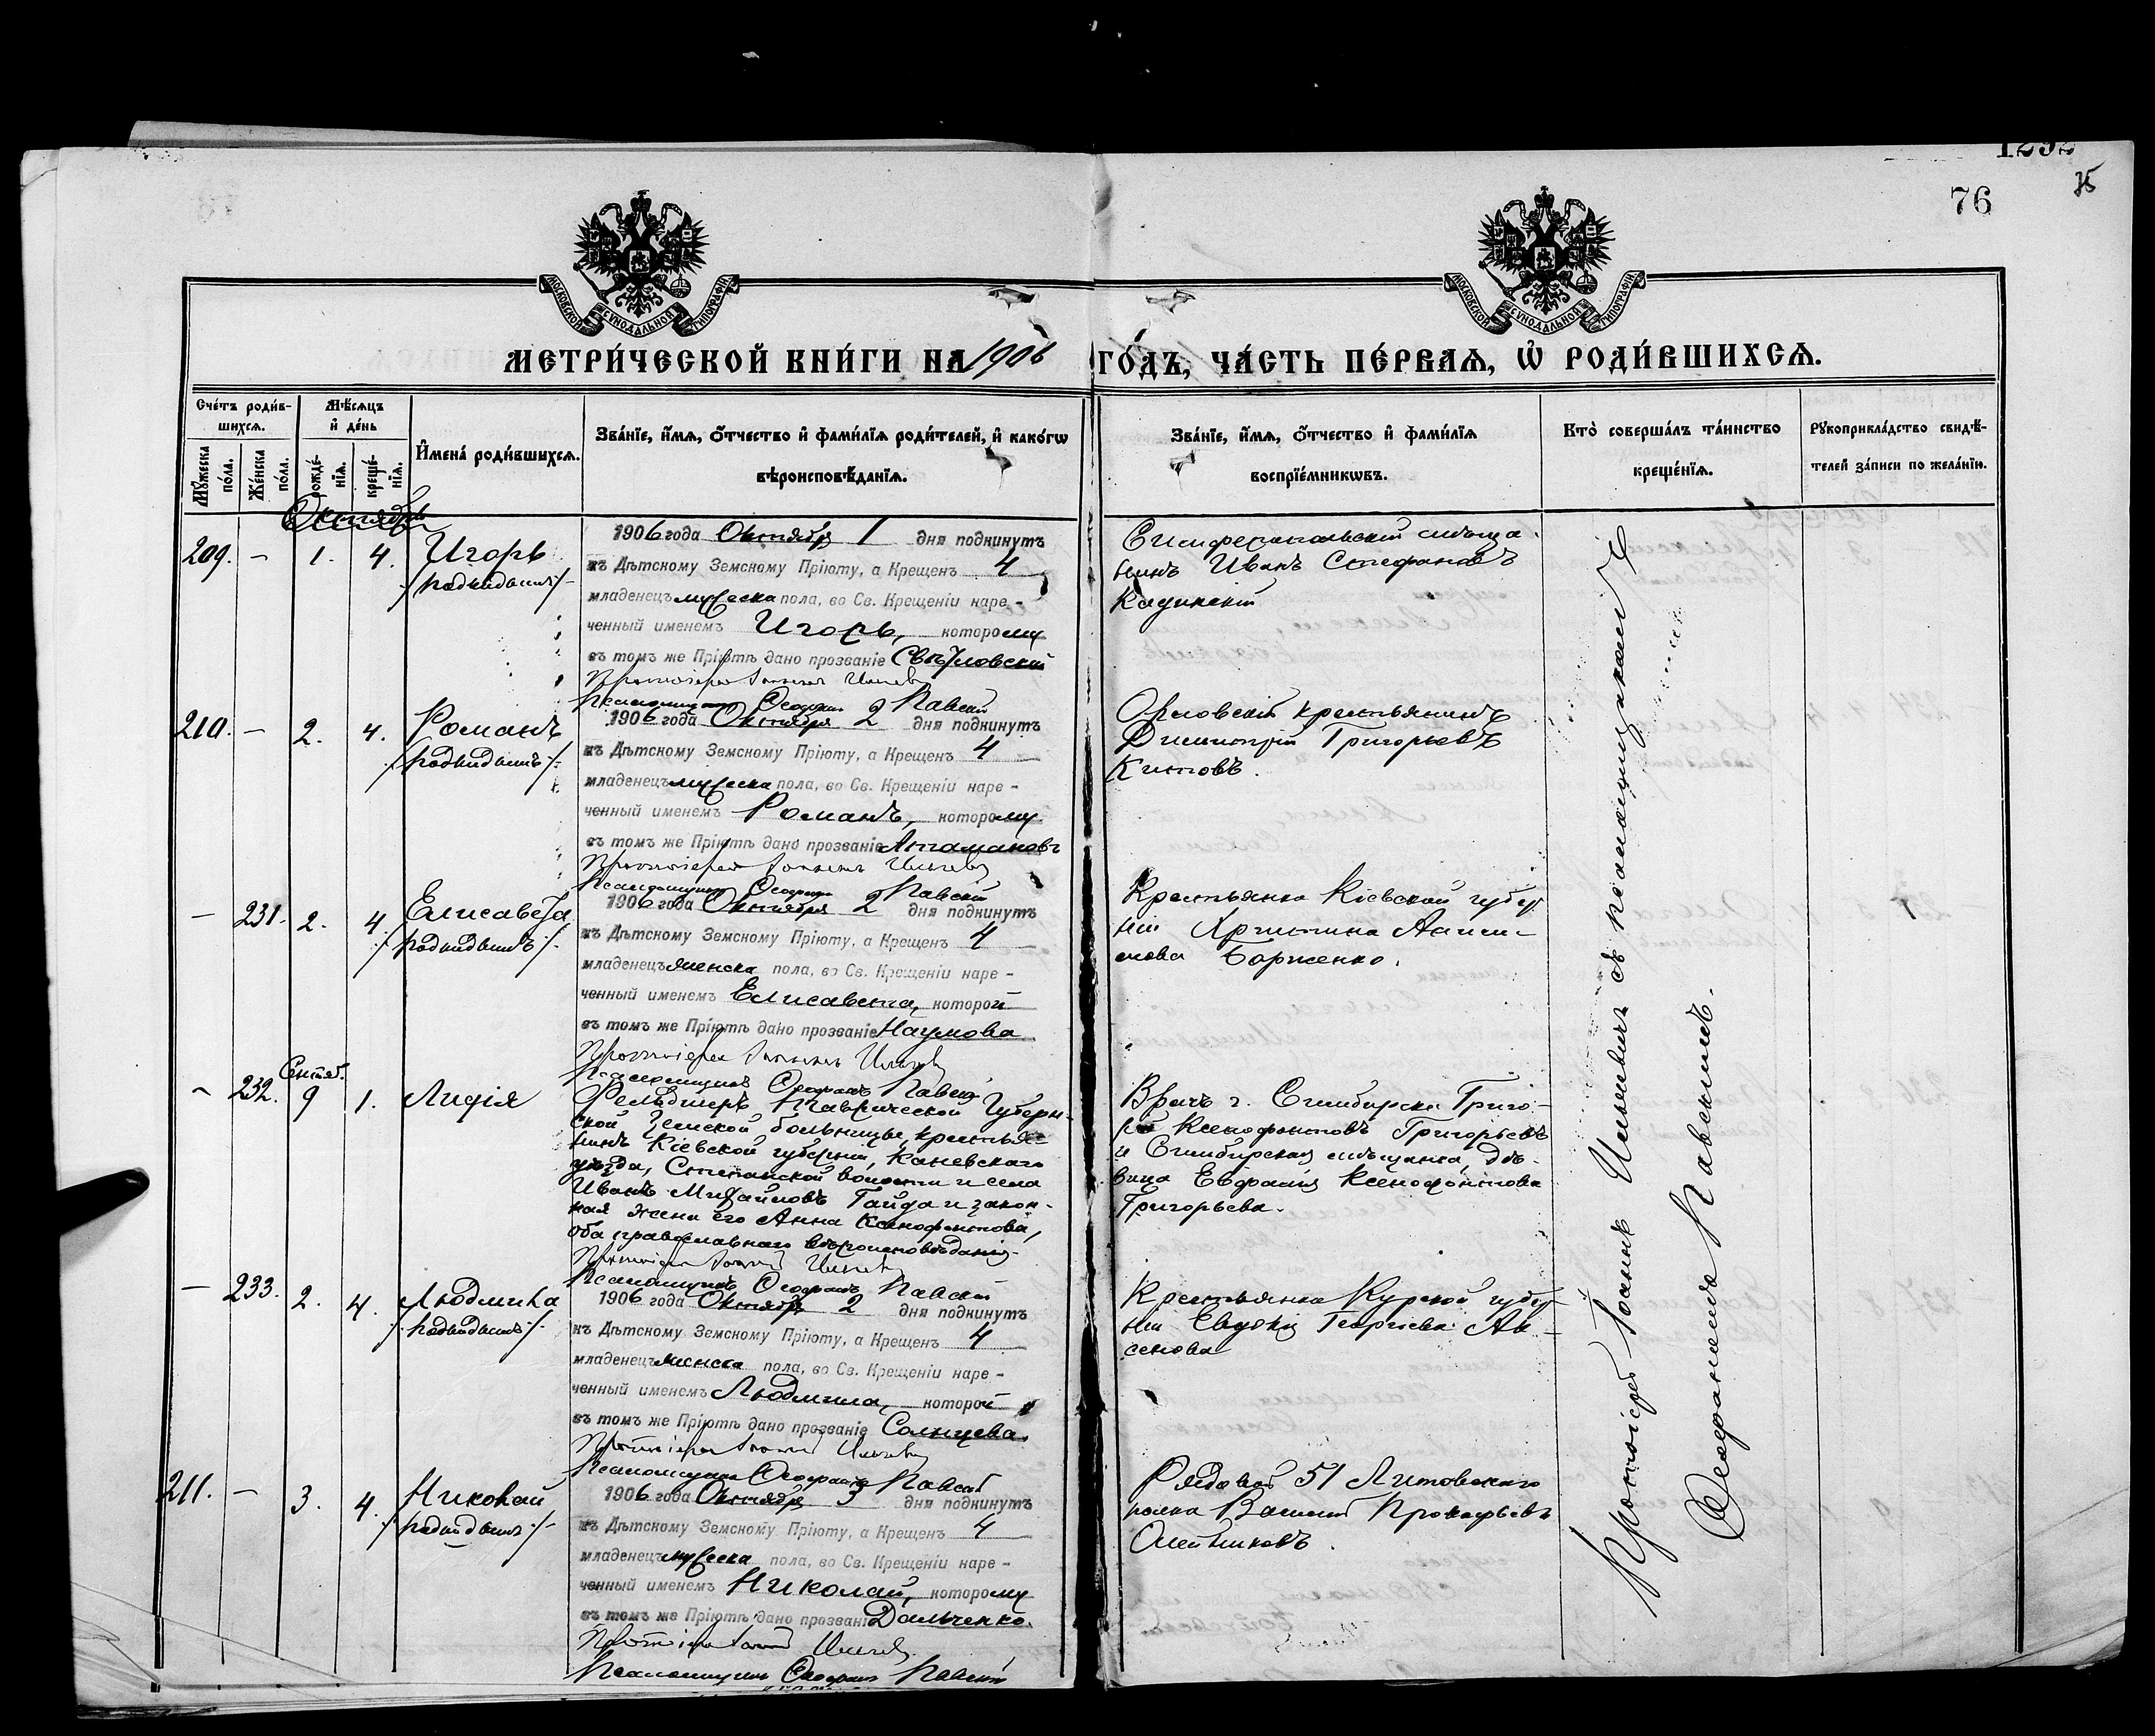 1292
76
75
МОСКОВСКОЙ СѴНОДАЛЬНОЙ ТИПОГРАФІИ
МОСКОВСКОЙ СѴНОДАЛЬНОЙ ТИПОГРАФІИ
МЕТРИ́ЧЕСКОЙ КНИ́ГИ НА 1906 ГО́ДЪ, ЧА́СТЬ ПЕ́РВАѦ, Ѡ҆ РОДИ́ВШИХСѦ.
Сче́тъ роди́в-
шихсѧ.
Мꙋ́жеска по́ла.
Же́нска по́ла.
Мѣ́сѧцъ
и҆ де́нь
рожде́-
нїѧ.
креще́-
нїѧ.
И҆мена̀ роди́вшихсѧ.
Зва́нїе, и҆́мѧ, ѻ҆́тчество и҆ фами́лїѧ роди́телей, и҆ како́гѡ
вѣроисповѣ́данїѧ.
Зва́нїе, и҆́мѧ, ѻ҆́тчество и҆ фами́лїѧ
воспрїе́мникѡвъ.
Кто̀ соверша́лъ та́инство
креще́нїѧ.
Рꙋкоприкла́дство свидѣ́-
телей за́писи по жела́нїю.
Октябрь
209. — 1. 4. Игорь
/:подкидышъ:/
1906 года Октября 1 дня подкинутъ
къ Дѣтскому Земскому Пріюту, а Крещенъ 4
младенецъ мужеска пола, во Св. Крещеніи наре-
ченный именемъ Игорь, которому
въ томъ же Пріютѣ дано прозваніе
Протоіерей Іоаннъ Ильчевичъ
Псаломщикъ Ѳеофанъ Павскій
Симферопольскій мѣща-
нинъ Иванъ Стефановъ
210. — 2. 4. Романъ
/:подкидышъ:/
1906 года Октября 2 дня подкинутъ
къ Дѣтскому Земскому Пріюту, а Крещенъ 4
младенецъ мужеска пола, во Св. Крещеніи наре-
ченный именемъ Романъ, которому
въ томъ же Пріютѣ дано прозваніе Атамановъ
Протоіерей Іоаннъ
Псаломщикъ Ѳеофанъ Павскій
Орловскій крестьянинъ
Димитрій Григорьевъ
Китовъ.
— 231. 2. 4. Елисавета
/:подкидышъ:/
1906 года Октября 2 дня подкинутъ
къ Дѣтскому Земскому Пріюту, а Крещенъ 4
младенецъ женска пола, во Св. Крещеніи наре-
ченный именемъ Елисавета, которой
въ томъ же Пріютѣ дано прозваніе Наумова
Протоіерей Іоаннъ
Псаломщикъ Ѳеофанъ Павскій
Крестьянка Кіевской губер-
ніи Христина
Борженко.
Сентяб.
— 232. 9 1. Лидія
Фельдшеръ Таврической Губерн-
ской Земской больницы, крестья-
нинъ Кіевской губерніи, Каневскаго
уѣзда, Степанской волости и села
Иванъ Михайловъ Гайда и закон-
ная жена его Анна Ксенофонтова,
оба православнаго вѣроисповѣданія.
Протоіерей Іоаннъ
Псаломщикъ Ѳеофанъ Павскій
Врачъ г. Симбирска Григо-
рій Ксенофонтовъ Григорьевъ
и Симбирская мѣщанка, дѣ-
вица Ксенофонтова
Григорьева.
— 233. 2. 4. Людмила
/:подкидышъ:/
1906 года Октября 2 дня подкинутъ
къ Дѣтскому Земскому Пріюту, а Крещенъ 4
младенецъ женска пола, во Св. Крещеніи наре-
ченный именемъ Людмила, которой
въ томъ же Пріютѣ дано прозваніе Солнцева.
Протоіерей Іоаннъ
Псаломщикъ Ѳеофанъ Павскій
Крестьянка Курской губер-
ніи Георгіева Ак-
сенова
211. — 3. 4. Николай
/:подкидышъ:/
1906 года Октября 3 дня подкинутъ
къ Дѣтскому Земскому Пріюту, а Крещенъ 4
младенецъ мужеска пола, во Св. Крещеніи наре-
ченный именемъ Николай, которому
въ томъ же Пріютѣ дано прозваніе Дальченко.
Протоіерей Іоаннъ
Псаломщикъ Ѳеофанъ Павскій
Рядовой 51 Литовскаго
полка Василій Прокофьевъ
Олейниковъ.
Протоіерей Іоаннъ съ псаломщикомъ
Ѳеофаномъ Павскимъ.